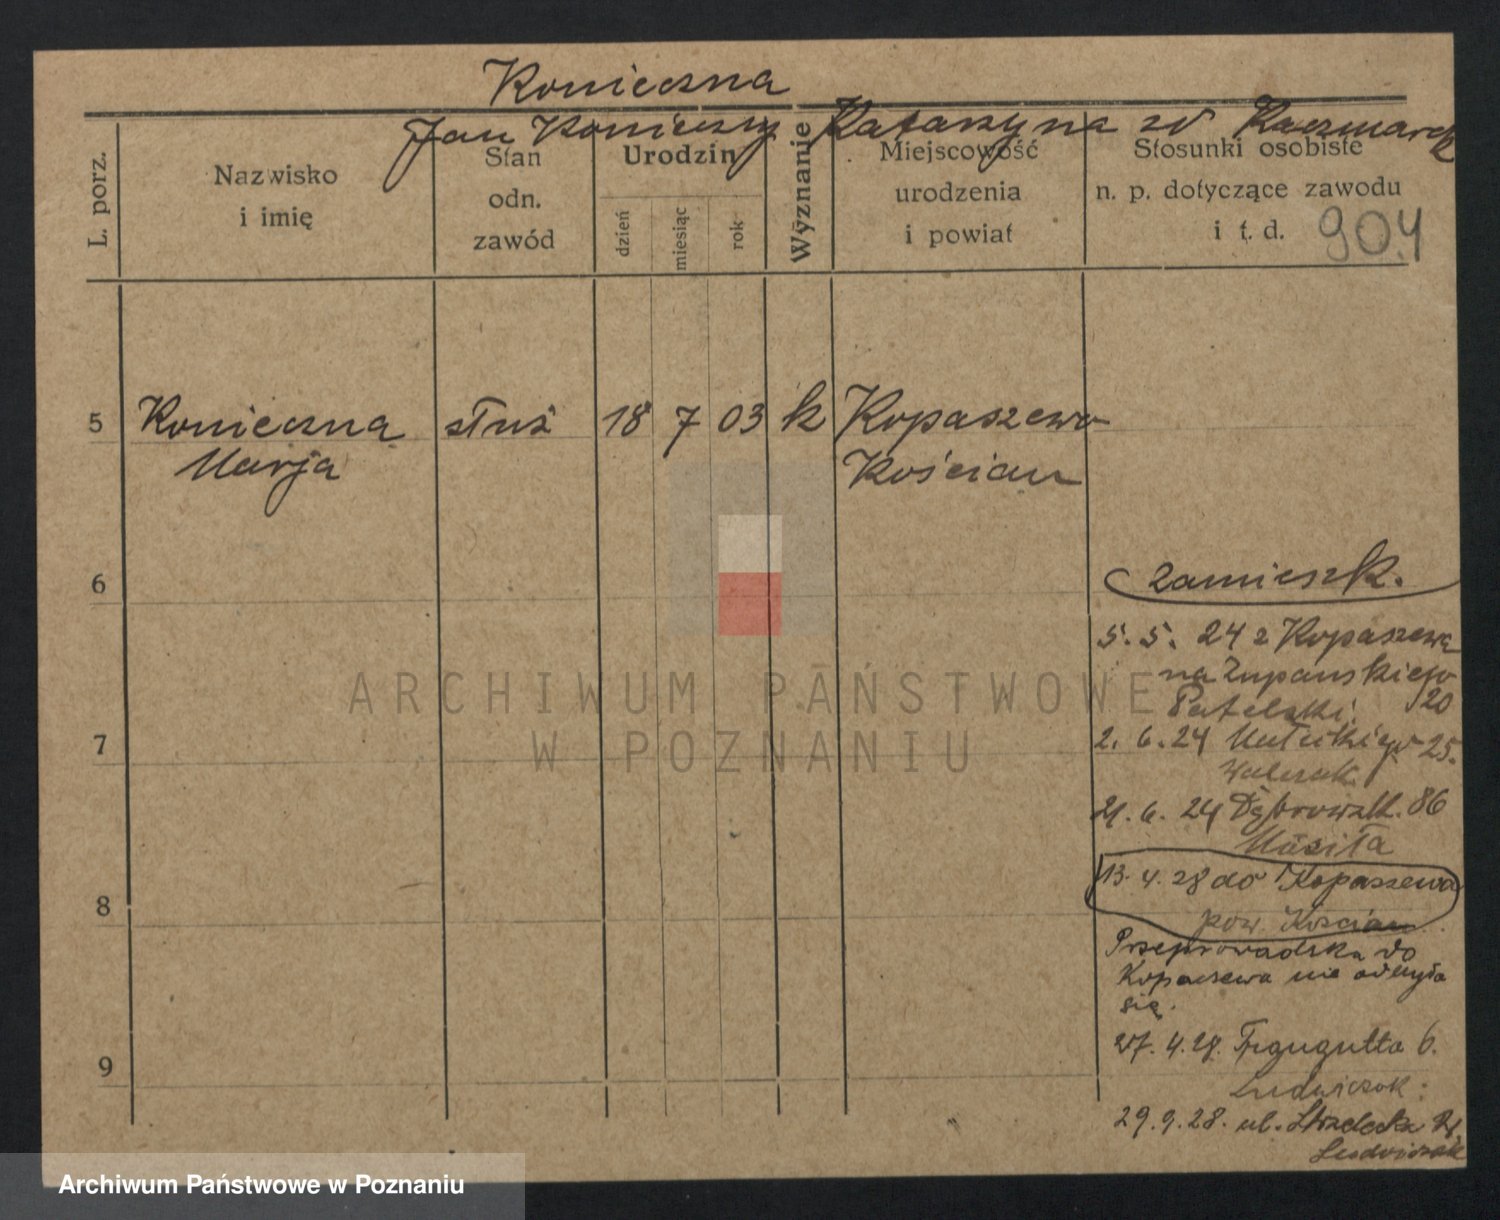 Konieczna
Jan Konieczny Katarzyna zd Kaczmarek
L. porz.
Nazwisko
i imię
Stan
odn.
zawód
Urodzin
dzień
miesiąc
rok
Wyznanie
Miejscowość
urodzenia
i powiat
Stosunki osobiste
n. p. dotyczące zawodu
i t. d. 90.4
5 Konieczna służ 18 7 03 k Kopaszewo
Marja Kościan
6
zamieszk.
5. 5. 24 z Kopaszewa
na Żupańskiego
20
7
2. 6. 24 25.
Walczak
21. 6. 24 Dąbrowsk. 86
Musiła
8
13. 4. 28 do Kopaszewa
pow. Kościan
Przeprowadzka do
Kopaszewa nie odbyła
się.
9
27. 4. 28. Traugutta 6.
Ludwiczak
29. 9. 28. ul. Strzelecka
Ludwiczak
ARCHIWUM PAŃSTWOWE
W POZNANIU
Archiwum Państwowe w Poznaniu